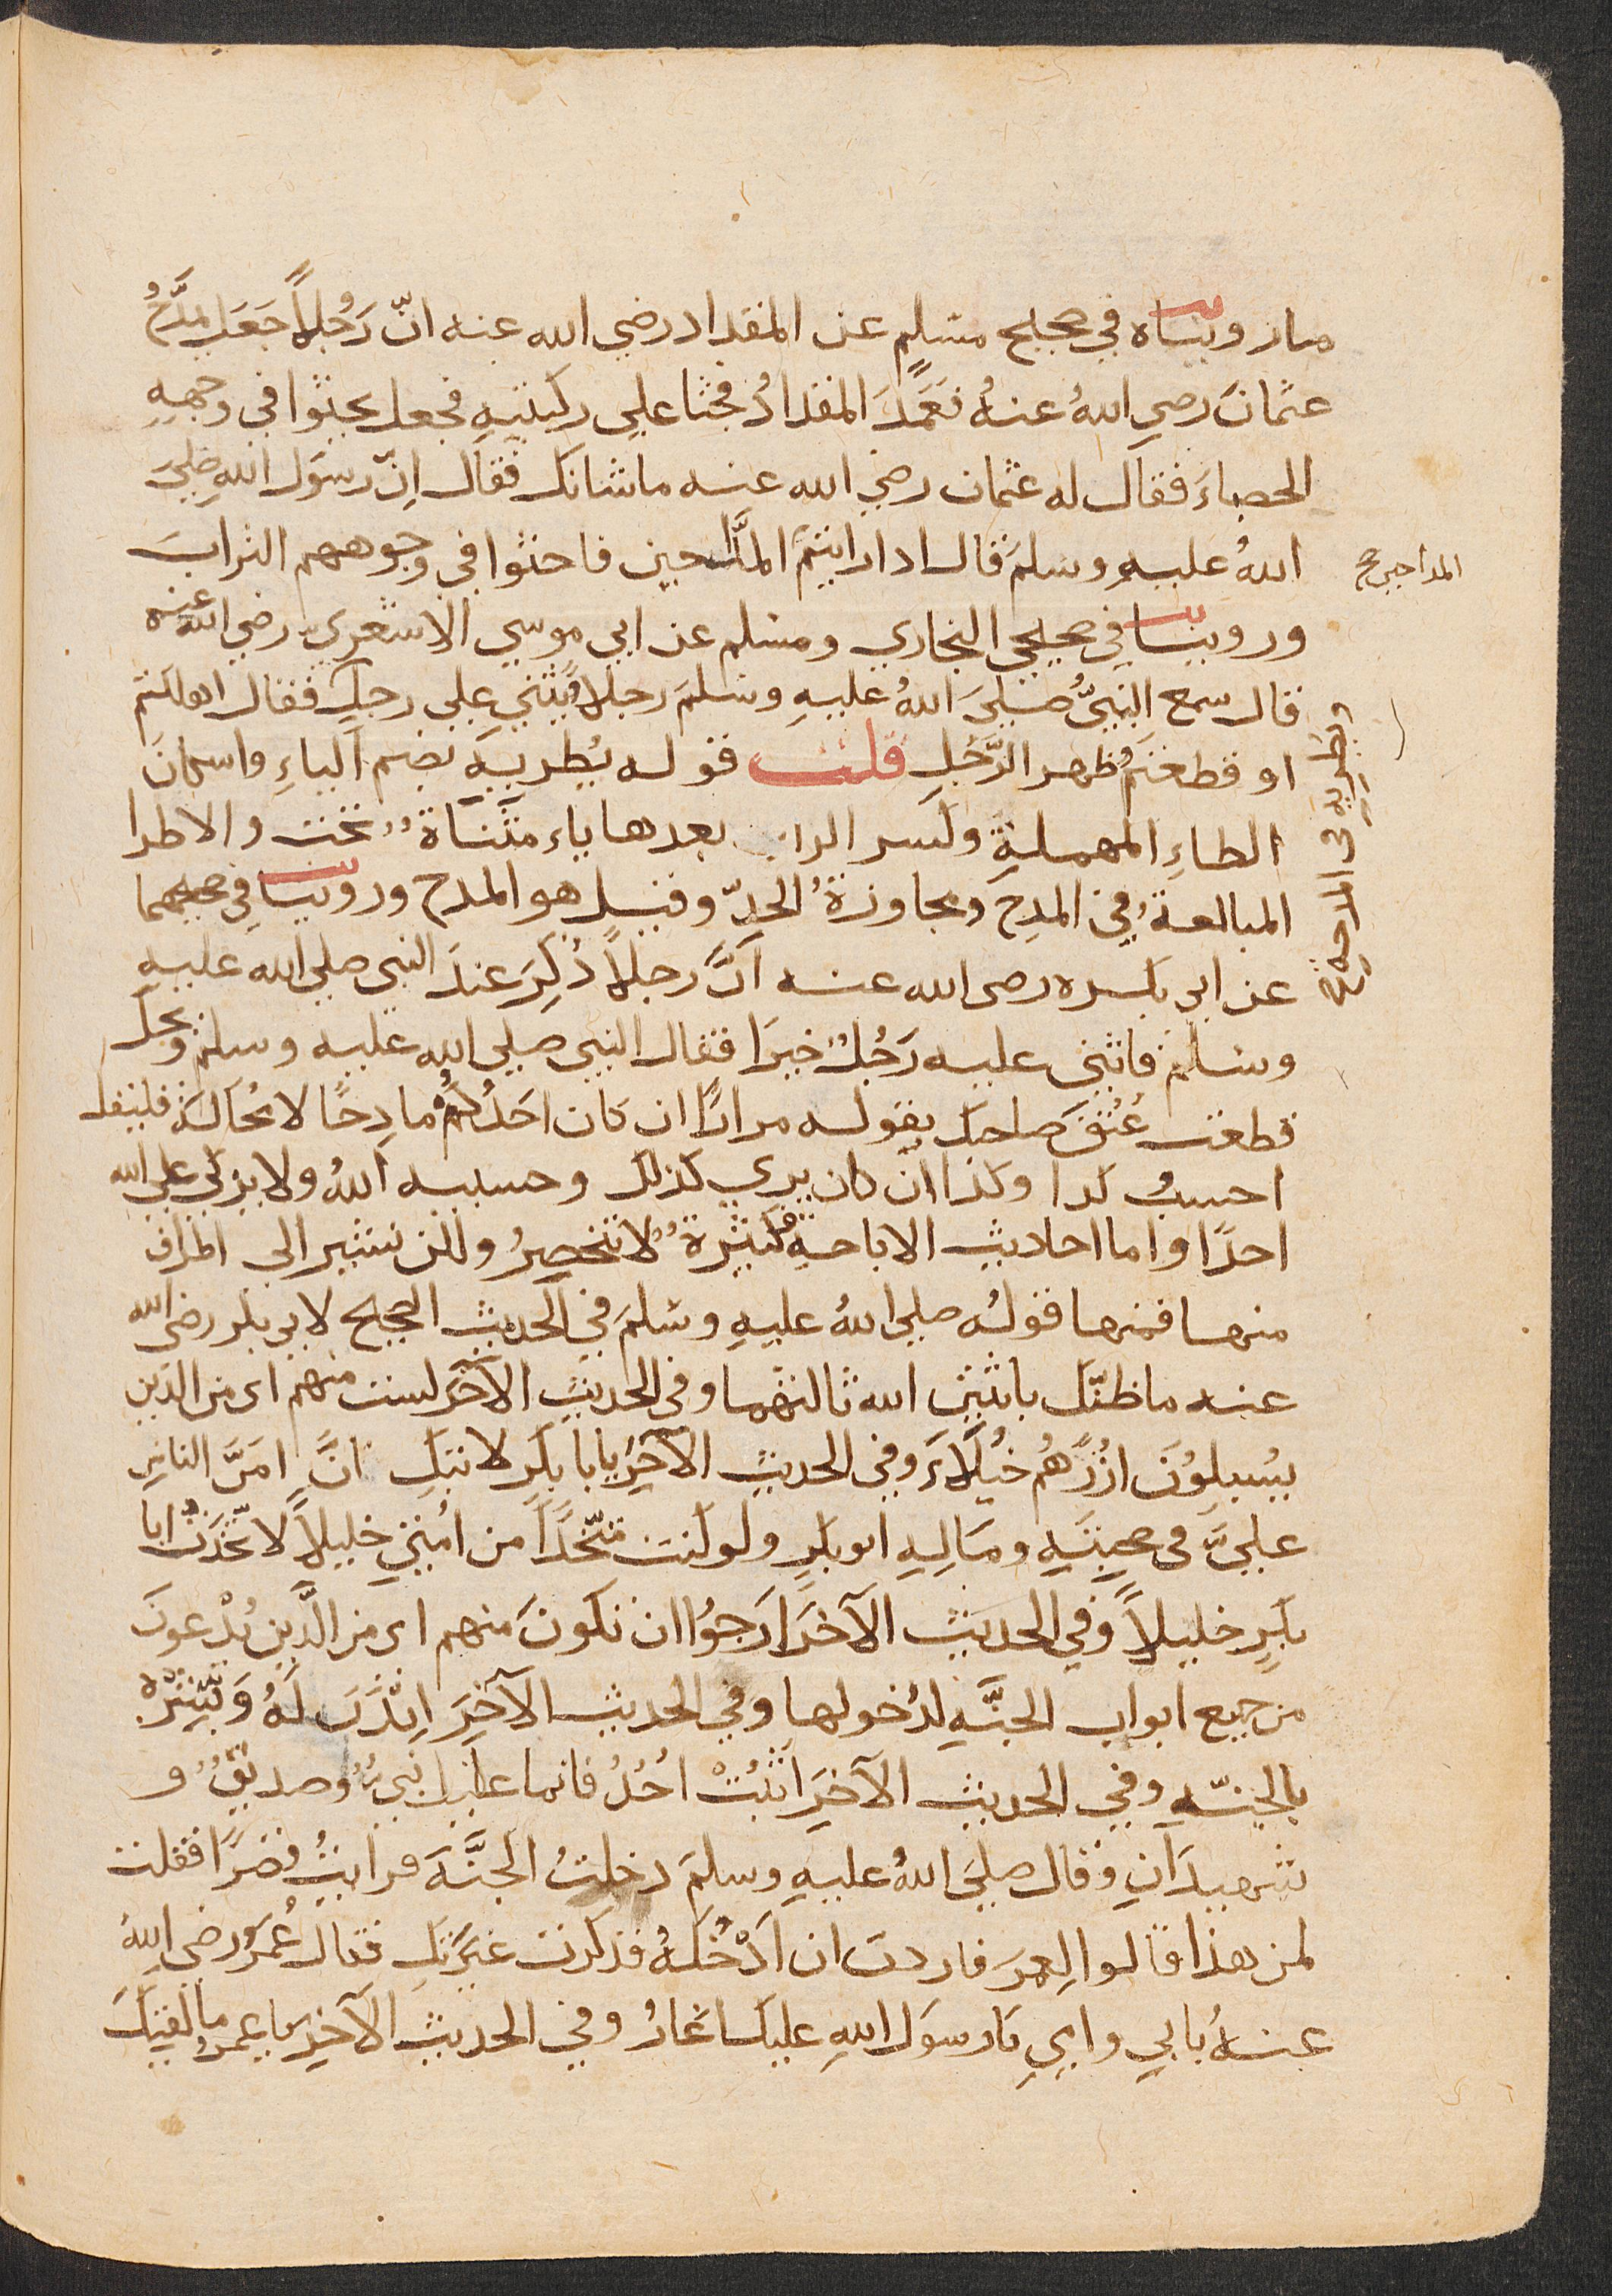 ما رويناه في صحيح مسلم عن المقداد رضي الله عنه انّ رَجُلاً جَعَل يمدَحُ
عثمانَ رضي اللهُ عنهُ فعَمَدَ المقدادُ فجثا علي ركبتيهِ فجعل يحثوا في وجههِ
الحصباءَ فقال له عثمان رضي الله عنه ما شانك فقال اِنّ رسوَل اللهِ صلَي
اللهُ عليهِ وسلمَ قال اذا رايتمُ المدَّاحين فاحثوا في وجوههم الترابَ
المداحين صح
وروينا في صحيحي البخاري ومسلم عن ابي موسي الاشعري رضي الله عنه
قال سمع النبيُّ صلَي اللهُ عليهِ وسلمَ رجلاً يثني علي رجلٍ فقال اهلكتم
ويطريه في المدحة
او قطعتمُ ظهر الرَّجُلِ قلت قوله يُطريهِ بضم الياءِ واسكان
الطاءِ المهملةِ وكسر الراء بعدها ياء مثَنَّاةٌ تحت والاطرا
المبالغةُ في المدحِ ومجاوزةُ الحدّ وقيل هو المدح وروينا في صحيحهما
عن ابي بكره رضي الله عنه اَنَّ رجلاً ذُكِرَ عندَ النبي صلي الله عليهِ
وسلم فاثني عليه رَجُلٌ خيرَا فقال النبي صلي الله عليه وسلم ويحك
قطعت عُنُقَ صاحبك يقوله مرارًا ان كان احَدُكُم مادِحًا لا محَالَةَ فليقل
احسبُ كذا وكذا ان كان يري كذلك وحسيبه اللهُ ولا يزكي علي الله
احدًا واما احاديث الاباحةِ فكثيرةٌ لا تنحصرُ ولكن نشير الي اطراف
منها فمنها قولُه صلي اللهُ عليهِ وسلمَ في الحديث الصحيح لابي بكر رضي الله
عنه ما ظنّك باثنين الله ثالثهما وفي الحديثِ الآخَر لست منهم اي من الذين
يُسبِلوُنَ اُزُرَهُم خُيَلَاءَ وفي الحديثِ الآخَرِ يا با بكرٍ لا تبكِ انَّ امَنَّ الناسِ
عليَّ في صحبَتِهِ ومَالِهِ ابو بكرٍ ولو كنت متّخذًا من امُتي خليلاً لاتّخذَتُ ابا
بكرٍ خليلاً وفي الحديث الآخَرَ ارَجوُا ان تكونَ منهم اي من الّذين يُدْعونَ
من جميع ابواب الجنَّهِ لدُخولها وفي الحديث الآخَرِ ايْذَن لَهُ وَبَشِّرْهُ
بالجنّهِ وفي الحديث الآخَرِ اثبُتْ اُحُدُ فانما عليك نبيٌّ وصديقٌ و
شهيدَانِ وقال صلَي اللهُ عليهِ وسلمَ دخلتُ الجنَّةَ فرايتُ قصَرًا فقلت
لمن هذا قالوا لِعمرَ فاردت ان اَدْخُلَهُ فذكرت غيَرَتَك فقال عُمرَ رضي اللهُ
عنهُ بابي وامِي يَا رسوَل اللهِ عليك اغَارُ وفي الحديث الآخَرِ يا عمرُ ما لقيَك